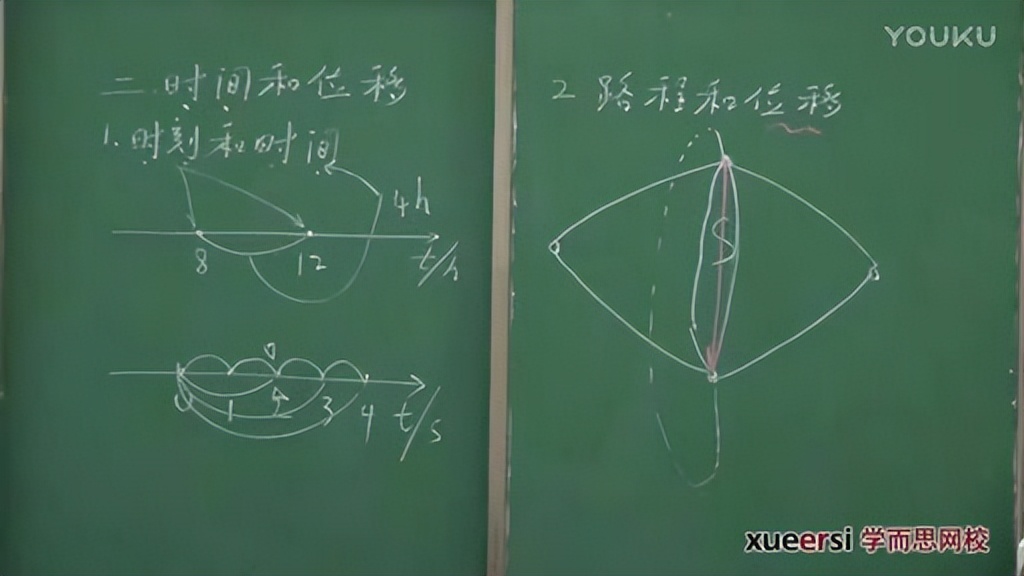 二.时间和位移
1.时刻和时间
4h
8 12 t/h
0 1 2 3 4 t/s
2 路程和位移
S
YOUKU
xueersi 学而思网校